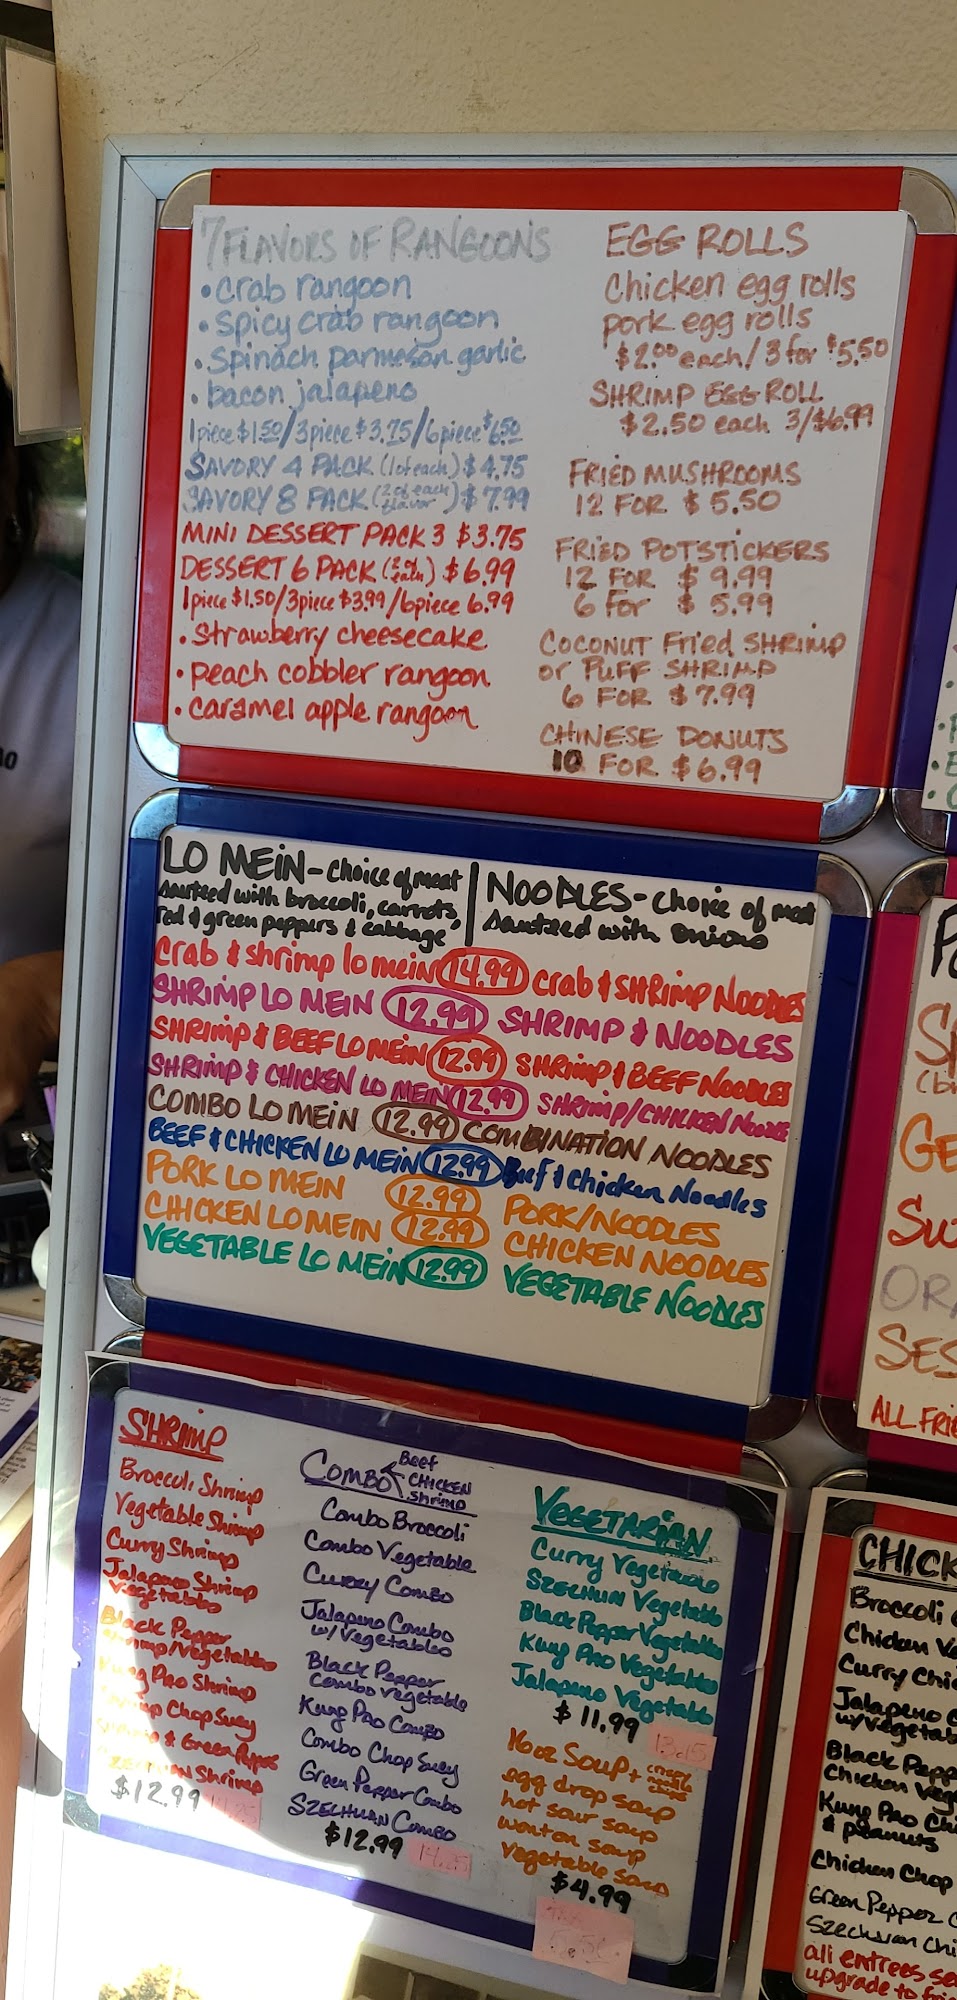 7 FLAVORS OF RANGOONS
• crab rangoon
• Spicy crab rangoon
• Spinach parmesan garlic
• bacon jalapeno
1 piece $1.50/3 piece $3.75/6 piece $6.50
SAVORY 4 PACK (1 of each) $4.75
SAVORY 8 PACK (2 of each flavor) $7.99
MINI DESSERT PACK 3 $3.75
DESSERT 6 PACK (2 of each) $6.99
1 piece $1.50/3 piece $3.99/6 piece 6.99
• Strawberry cheesecake
• peach cobbler rangoon
• caramel apple rangoon
EGG ROLLS
Chicken egg rolls
pork egg rolls
$2.00 each/3 for $5.50
SHRIMP EGG ROLL
$2.50 each 3/$6.99
FRIED MUSHROOMS
12 FOR $5.50
FRIED POTSTICKERS
12 FOR $9.99
6 For $5.99
COCONUT Fried SHRIMP
or PUFF SHRIMP
6 FOR $7.99
CHINESE DONUTS
10 FOR $6.99
LO MEIN - choice of meat
sauteed with broccoli, carrots,
red & green peppers & cabbage
NOODLES - choice of meat
sauteed with onions
Crab & shrimp lo mein 14.99 Crab & SHRIMP NOODLES
SHRIMP LO MEIN 12.99 SHRIMP & NOODLES
SHRIMP & BEEF LO MEIN 12.99 SHRIMP & BEEF NOODLES
SHRIMP & CHICKEN LO MEIN 12.99 SHRIMP/CHICKEN NOODLE
COMBO LO MEIN 12.99 COMBINATION NOODLES
BEEF & CHICKEN LO MEIN 12.99 Beef & Chicken Noodles
PORK LO MEIN 12.99 PORK/NOODLES
CHICKEN LO MEIN 12.99 CHICKEN NOODLES
VEGETABLE LO MEIN 12.99 VEGETABLE NOODLES
SHRIMP
Broccoli Shrimp
Vegetable Shrimp
Curry Shrimp
Jalapeno Shrimp
Vegetables
Black Pepper
Shrimp/Vegetables
Kung Pao Shrimp
Shrimp Chop Suey
Szechuan Shrimp
$12.99
COMBO
Beef
CHICKEN
Shrimp
Combo Broccoli
Combo Vegetable
Curry Combo
Jalapeno Combo
w/Vegetables
Black Pepper
Combo vegetable
Kung Pao Combo
Combo Chop Suey
Green Pepper Combo
SZECHUAN COMBO
$12.99 14.25
VEGETARIAN
Curry Vegetable
SZECHUN Vegetable
Black Pepper Vegetables
Kung Pao Vegetables
Jalapeno Vegetable
$11.99 13.15
16oz SOUP +
egg drop soup
hot sour soup
wonton soup
vegetable soup
$4.99
5.50
ALL FRIE
CHICK
Broccoli
Chicken Ve
Curry Chic
Jalapeno C
w/Vegetab
Black Pepp
Chicken Vege
Kung Pao Chi
& peanuts
Chicken Chop
Green Pepper C
Szechuan Chi
all entrees se
upgrade to fri